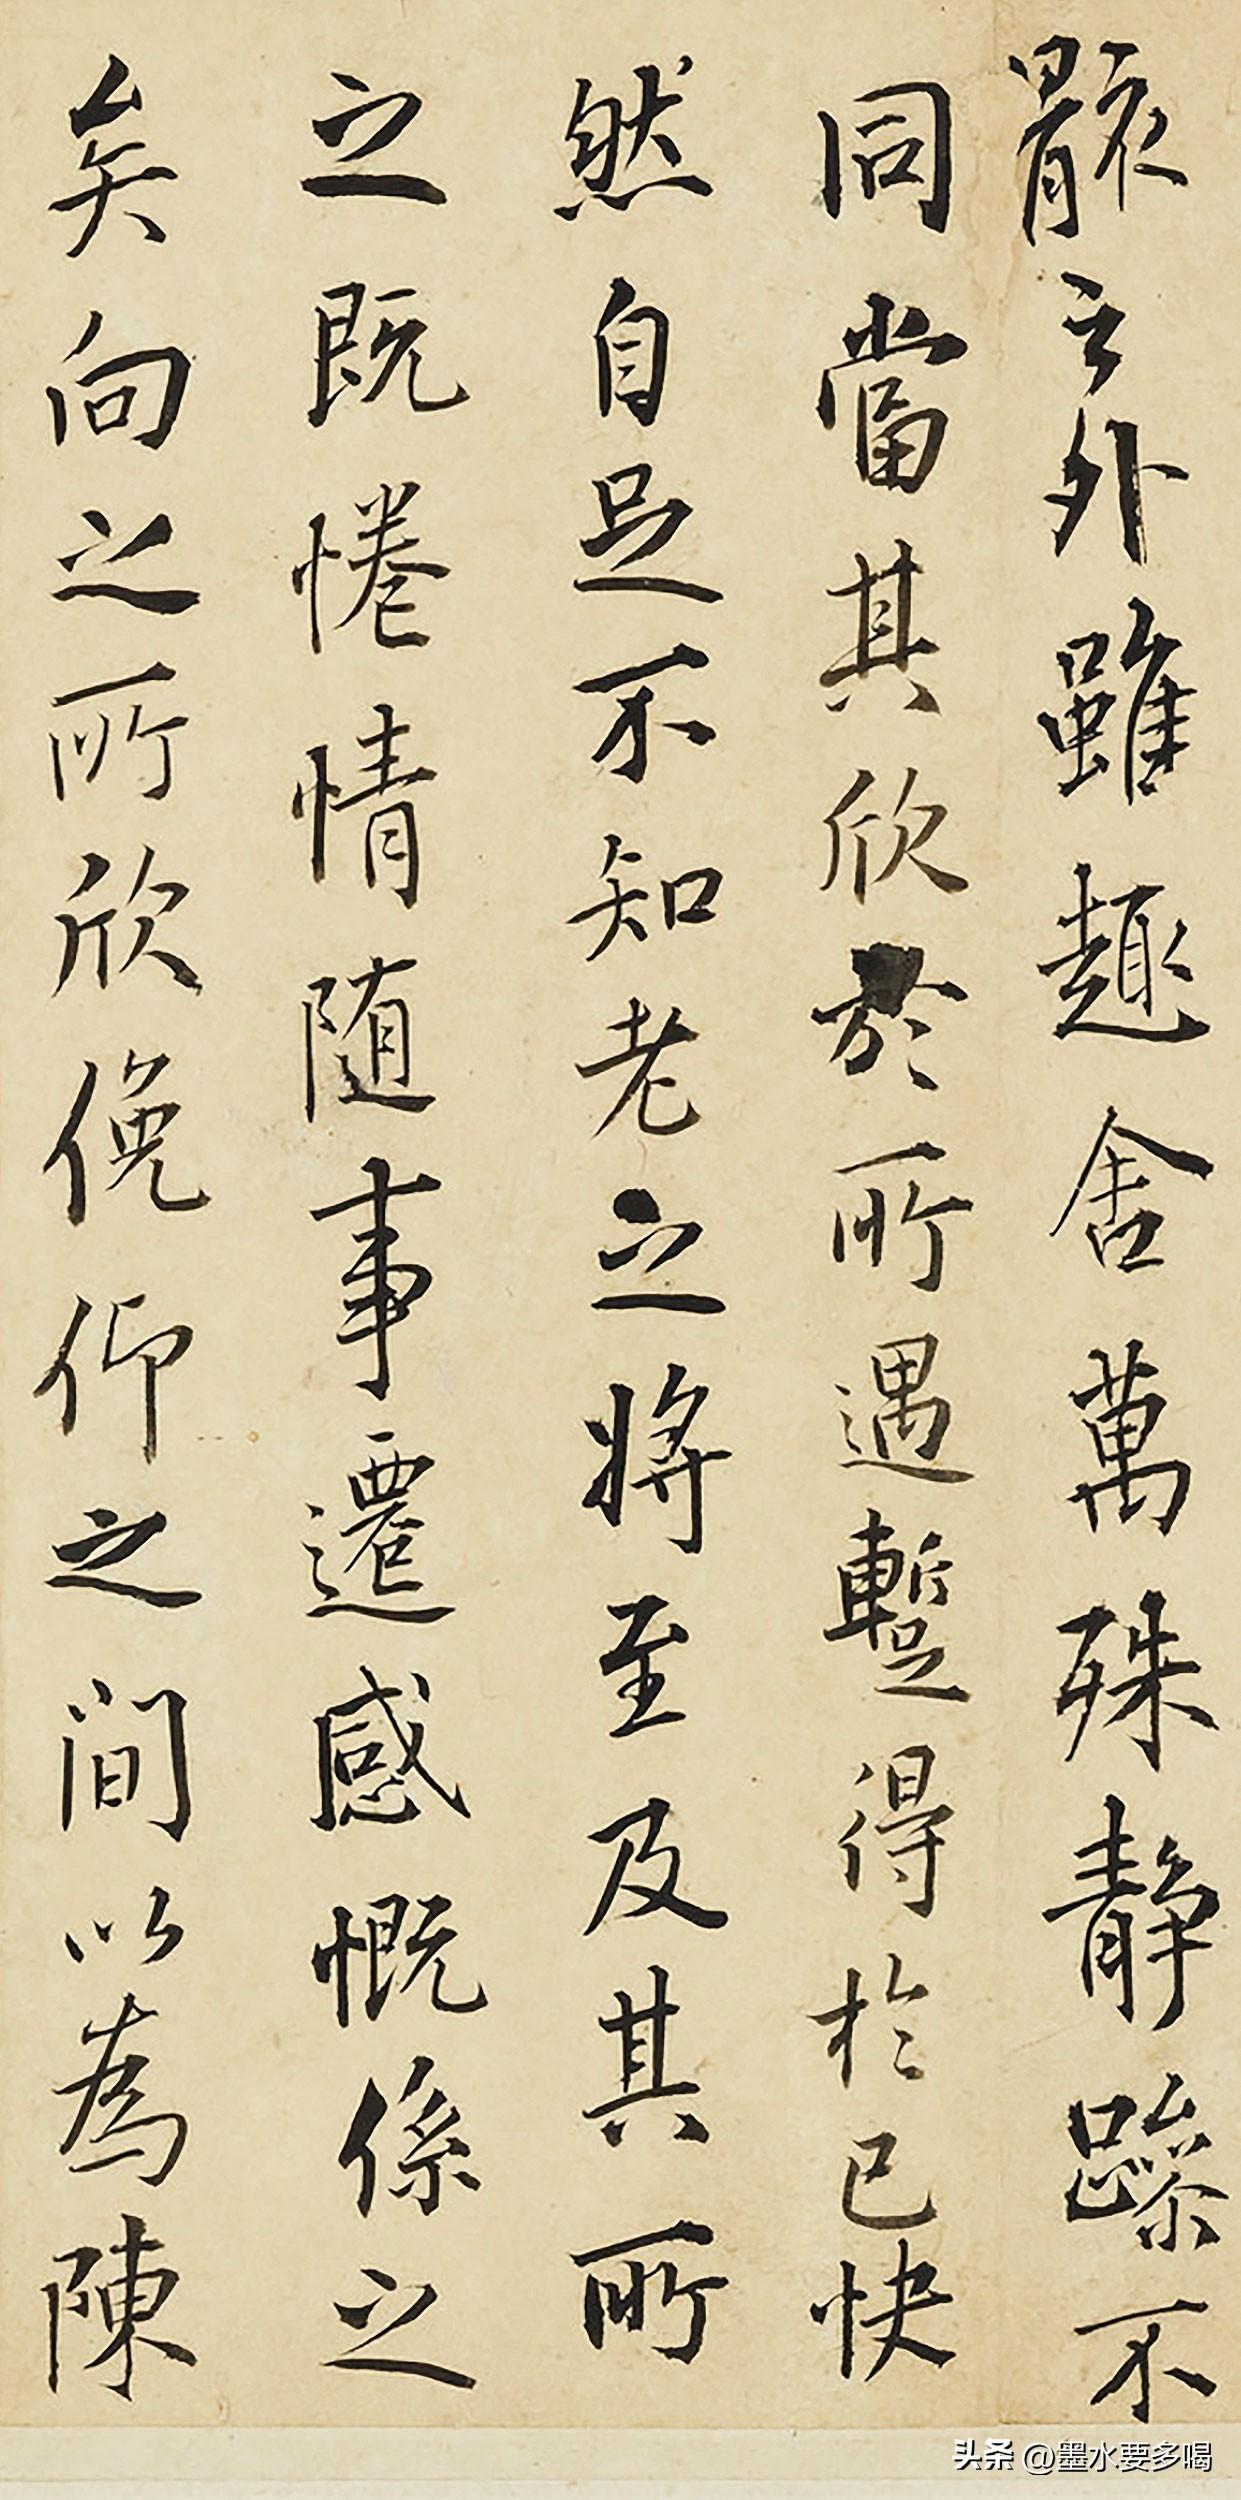 骸之外雖趣舍萬殊静躁不
同當其欣於所遇蹔得於己快
然自足不知老之將至及其所
之既惓情随事遷感慨係之
矣向之所欣俛仰之間以為陳
头条 @墨水要多喝